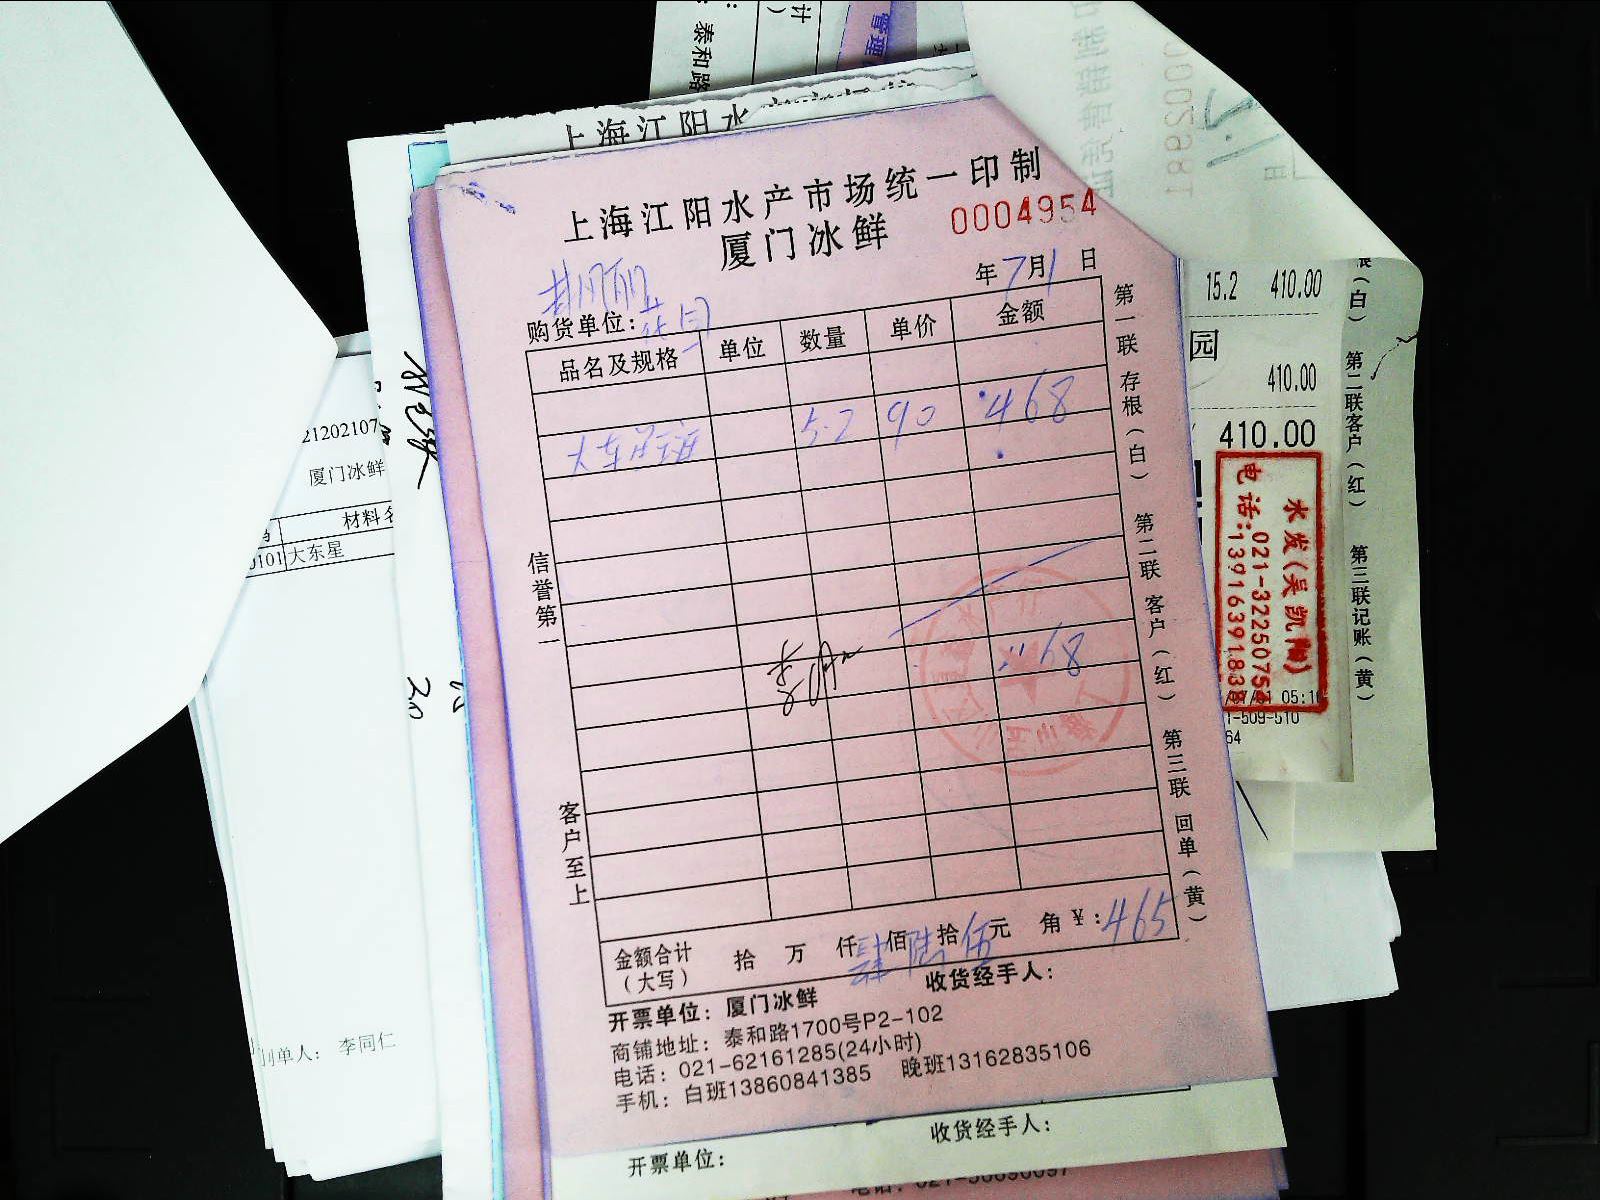 计
）
：泰和路
管理
上海江阳水
0002981
上海江阳水产市场统一印制
厦门冰鲜
0004954
年7月1日
购货单位：
花园
品名及规格 单位 数量 单价 金额
大东星斑 5.2 90 468
468
信誉第一
客户至上
第一联 存根（白） 第二联 客户（红） 第三联 回单（黄）
金额合计（大写） 拾 万 仟 肆佰陆拾伍元 角 ¥：465
收货经手人：
开票单位：厦门冰鲜
商铺地址：泰和路1700号P2-102
电话：021-62161285(24小时)
手机：白班13860841385 晚班13162835106
收货经手人：
开票单位：
15.2 410.00
园
410.00
410.00
水发(吴凯
021-32250754
电话:13916391838
05:1
1-509-510
64
（白） 第二联客户（红） 第三联记账（黄）
21202107
厦门冰鲜
材料名
0101 大东星
单人： 李同仁